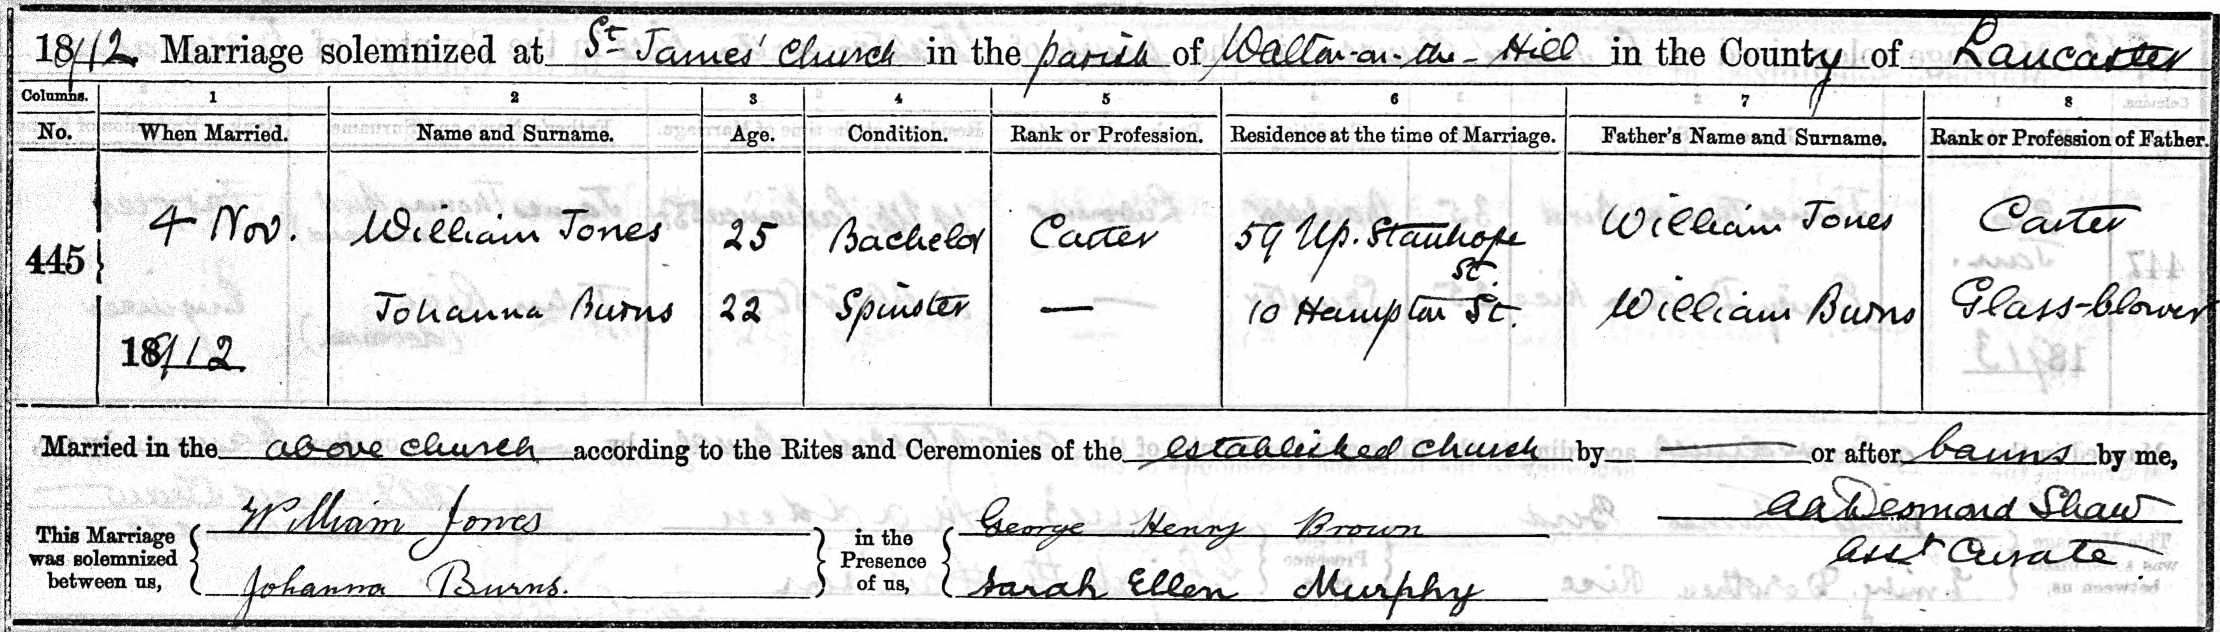 1912 Marriage solemnized at St. James' Church in the parish of Walton-on-the-Hill in the County of Lancaster
Columns. 1 2 3 4 5 6 7 8
No. When Married. Name and Surname. Age. Condition. Rank or Profession. Residence at the time of Marriage. Father's Name and Surname. Rank or Profession of Father.
445 4 Nov. William Jones 25 Bachelor Carter 59 Up. Stanhope St. William Jones Carter
1912 Johanna Burns 22 Spinster — 10 Hampton St. William Burns Glass-blower
Married in the above church according to the Rites and Ceremonies of the established church by — or after banns by me,
This Marriage was solemnized between us, William Jones Johanna Burns. in the Presence of us, George Henry Brown Sarah Ellen Murphy Desmond Shaw
Asst Curate